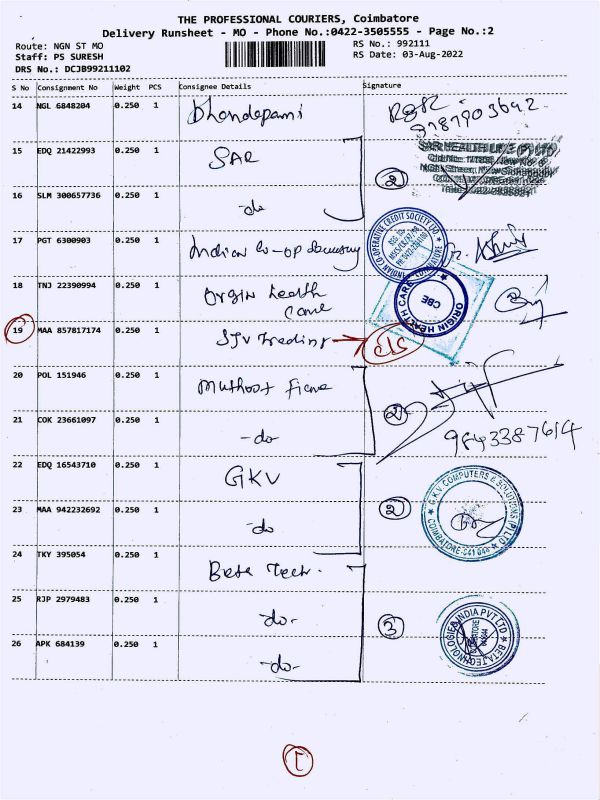 THE PROFESSIONAL COURIERS, Coimbatore
Delivery Runsheet - MO - Phone No.:0422-3505555 - Page No.:2
Route: NGN ST MO
RS No.: 992111
Staff: PS SURESH
RS Date: 03-Aug-2022
DRS No.: DCJB99211102
S No Consignment No Weight PCS Consignee Details Signature
14 NGL 6848204 0.250 1
15 EDQ 21422993 0.250 1 SAR
SAR HEALTH
2
16 SLM 300657736 0.250 1 -do
17 PGT 6300903 0.250 1 Indian Co-op
INDIAN CO-OPERATIVE CREDIT SOCIETY LTD.
COIMBATORE
18 TNJ 22390994 0.250 1 Origin health
care
ORIGIN HEALTH CARE
CBE
19 MAA 857817174 0.250 1 SJV Trading
20 POL 151946 0.250 1 Muthoot
2
21 COK 23661097 0.250 1 -do-
9843387614
22 EDQ 16543710 0.250 1 GKV
G.K.V. COMPUTERS & SOLUTIONS (P) LTD
COIMBATORE-641 044
2
23 MAA 942232692 0.250 1 -do
24 TKY 395054 0.250 1 Beta Tech.
25 RJP 2979483 0.250 1 -do-
3
BETA TECHNOLOGIES INDIA PVT LTD
COIMBATORE
641044
26 APK 684139 0.250 1 -do-
1